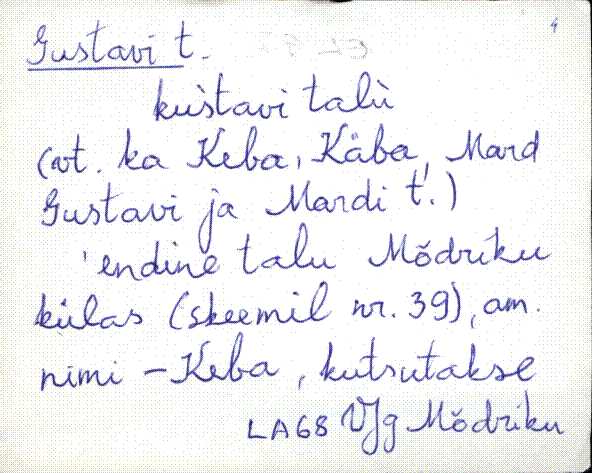 4
Gustavi t.
kùstavi talù
(vt. ka Keba, Käba, Mard
Gustavi ja Mardi t.)
'endine talu Mõdriku
külas (skeemil nr. 39), am.
nimi – Keba, kutsutakse
LA68 VJg Mõdriku